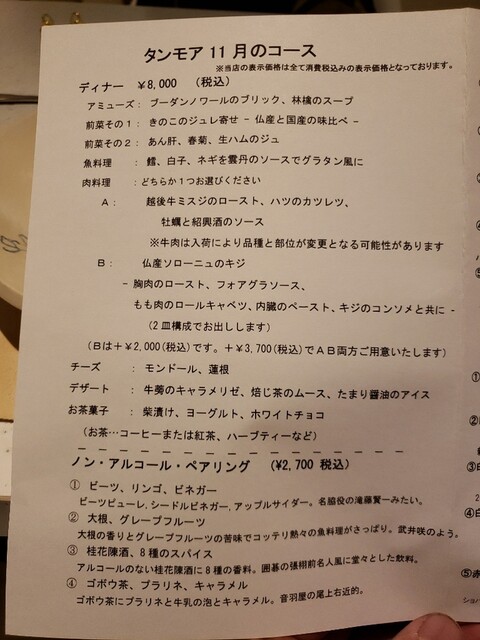 タンモア 11月のコース
※当店の表示価格は全て消費税込みの表示価格となっております。
ディナー ¥8,000 (税込)
アミューズ: ブーダンノワールのブリック、林檎のスープ
前菜その1: きのこのジュレ寄せ - 仏産と国産の味比べ -
前菜その2: あん肝、春菊、生ハムのジュ
魚料理 : 鱈、白子、ネギを雲丹のソースでグラタン風に
肉料理 : どちらか1つお選びください
A: 越後牛ミスジのロースト、ハツのカツレツ、
牡蠣と紹興酒のソース
※牛肉は入荷により品種と部位が変更となる可能性があります
B: 仏産ソローニュのキジ
- 胸肉のロースト、フォアグラソース、
もも肉のロールキャベツ、内臓のペースト、キジのコンソメと共に -
(2皿構成でお出しします)
(Bは+¥2,000(税込)です。+¥3,700(税込)でAB両方ご用意いたします)
チーズ : モンドール、蓮根
デザート : 牛蒡のキャラメリゼ、焙じ茶のムース、たまり醤油のアイス
お茶菓子 : 柴漬け、ヨーグルト、ホワイトチョコ
(お茶…コーヒーまたは紅茶、ハーブティーなど)
ノン・アルコール・ペアリング (¥2,700 税込)
① ビーツ、リンゴ、ビネガー
ビーツピューレ、シードルビネガー、アップルサイダー。名脇役の滝藤賢一みたい。
② 大根、グレープフルーツ
大根の香りとグレープフルーツの苦味でコッテリ熱々の魚料理がさっぱり。武井咲のよう。
③ 桂花陳酒、8種のスパイス
アルコールのない桂花陳酒に8種の香料。囲碁の張栩前名人風に堂々とした飲料。
④ ゴボウ茶、プラリネ、キャラメル
ゴボウ茶にプラリネと牛乳の泡とキャラメル。音羽屋の尾上右近的。